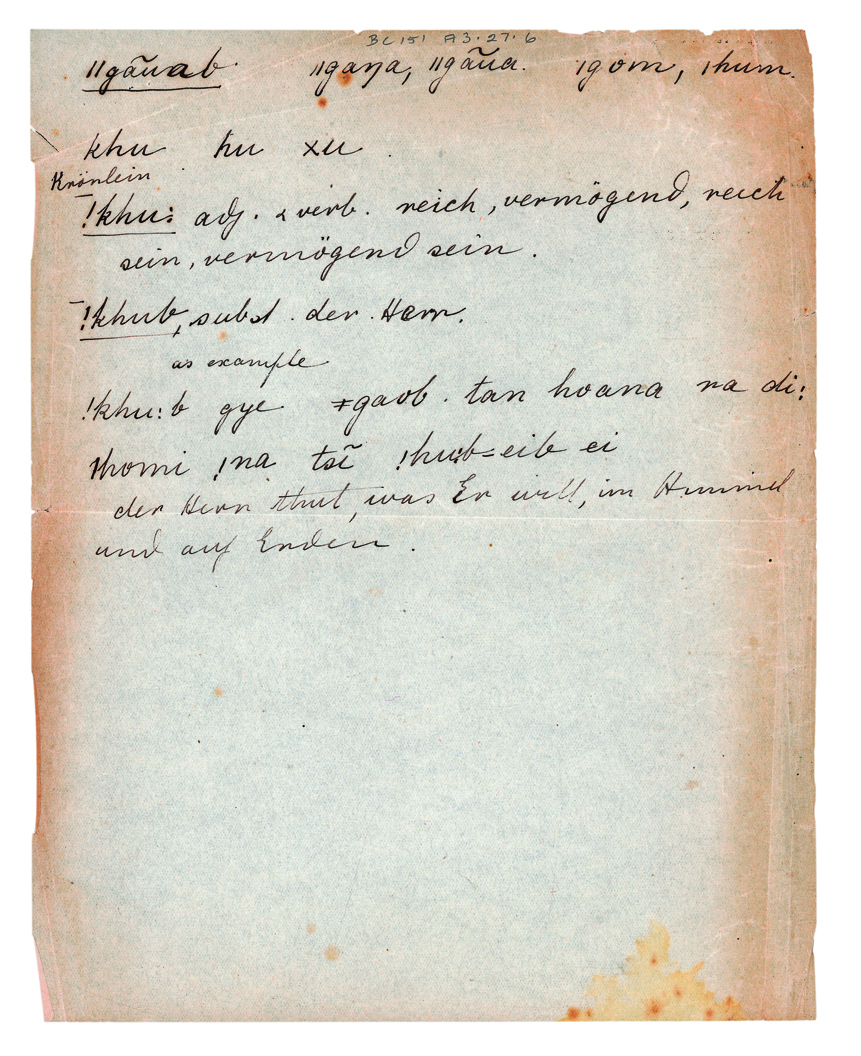 BC 151 A3.27.6
ǁgãuab. ǁgaŋa, ǁgãũa. ǀgom, ǀhum.
khu hu xu.
Krönlein
!khu: adj. & verb. reich, vermögend, reich
sein, vermögend sein.
!khub, subst. der Herr.
as example
!khu:b gye ǂgaob. tan hoana na di:
ǀhomi !na tsĩ !hub=eib ei
der Herr thut, was Er will, im Himmel
und auf Erden.